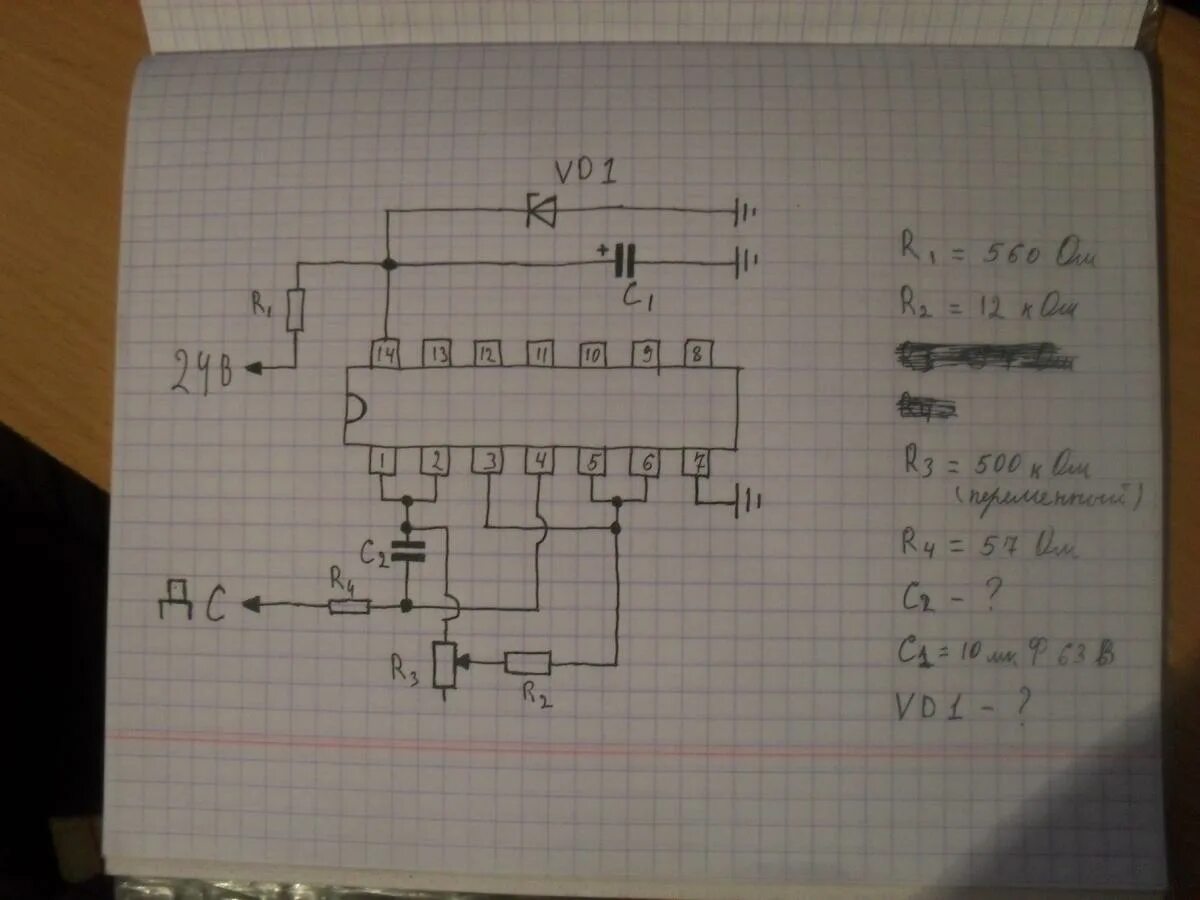 VD1
+
C1
R1
24В
14 13 12 11 10 9 8
1 2 3 4 5 6 7
C2
R4
ДС
R3
R2
R1 = 560 Ом
R2 = 12 кОм
R3 = 500 кОм
(переменный)
R4 = 57 Ом
C2 - ?
C1 = 10 мкФ 63 В
VD1 - ?